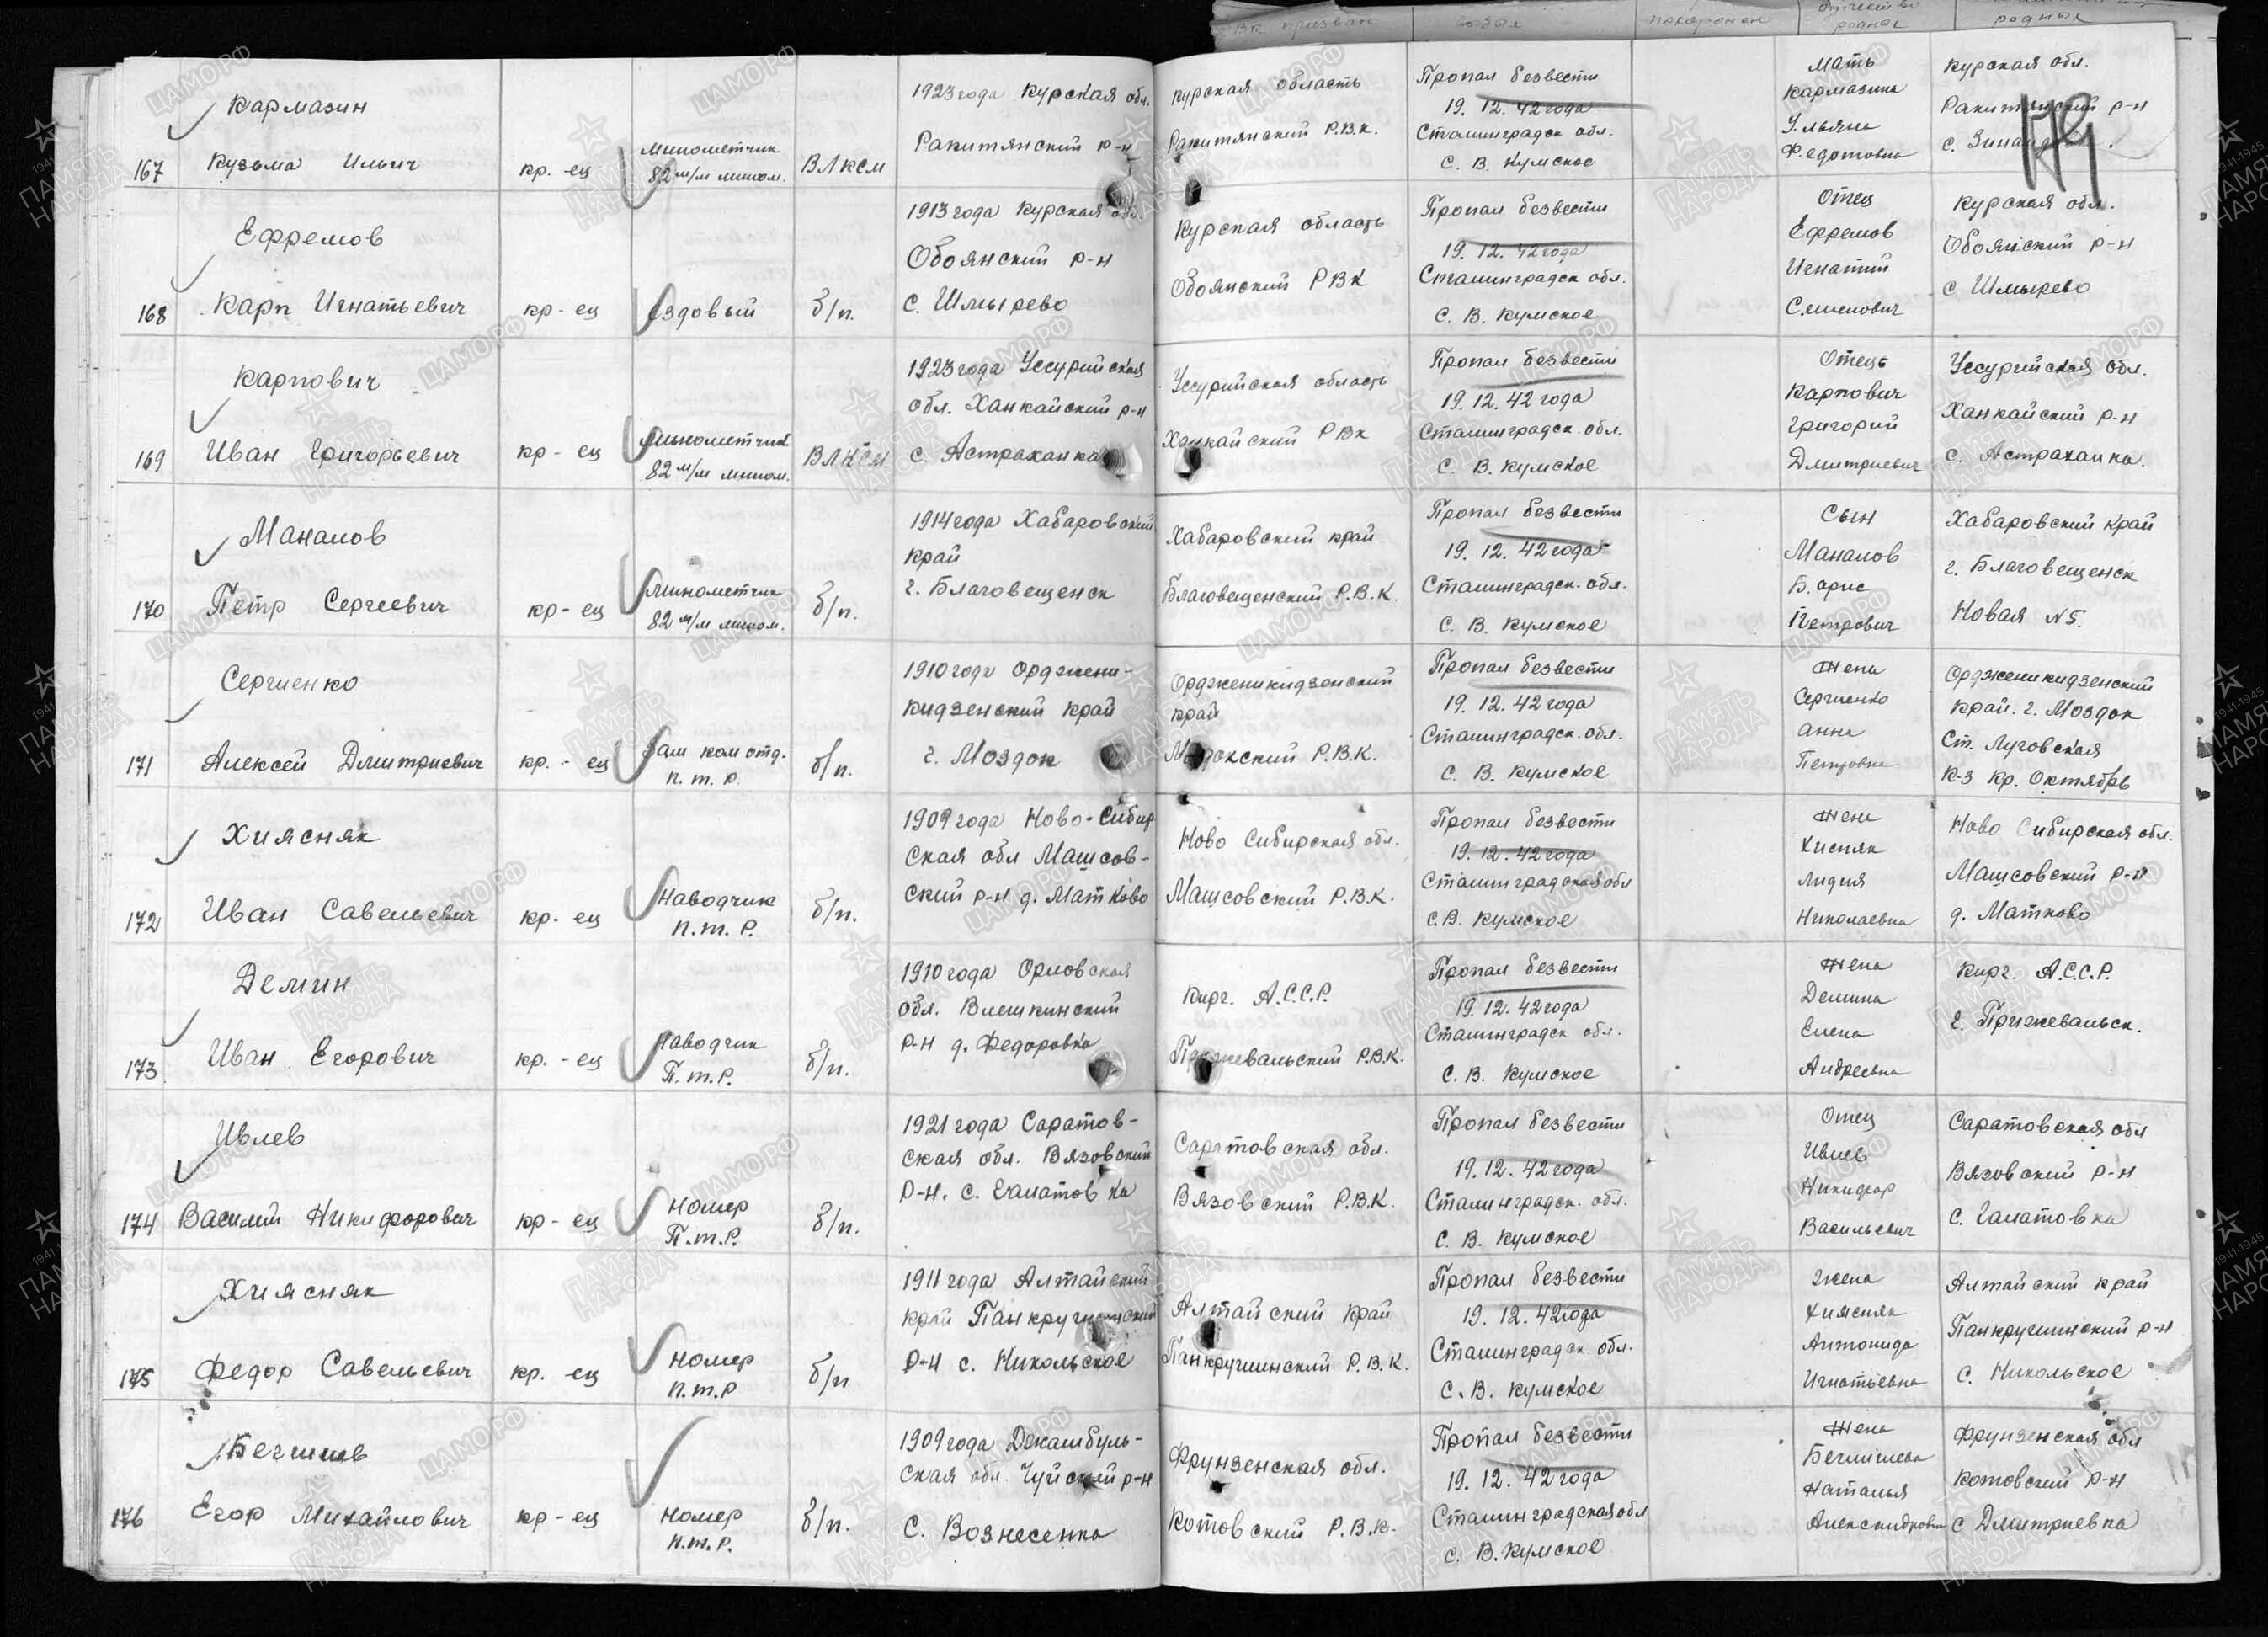 ВК призван
похоронен
отчество
родных
родных
179
Кармазин
Кузьма Ильич
167
кр.-ец
минометчик
82 м/м мином.
ВЛКСМ
1923 года Курская обл.
Ракитянский р-н
Курская область
Ракитянский Р.В.К.
Пропал безвести
19.12.42 года
Сталинградск обл.
С. В. Кумское
Мать
Кармазина
Ульяна
Федотовна
Курская обл.
Ракитянский р-н
с.
Ефремов
168
Карп Игнатьевич
кр-ец
ездовый
б/п.
1913 года Курская обл.
Обоянский р-н
с. Шмырево
Курская область
Обоянский РВК
Пропал безвести
19.12.42 года
Сталинградск обл.
С. В. Кумское
Отец
Ефремов
Игнатий
Семенович
Курская обл.
Обоянский р-н
с. Шмырево
Карпович
169
Иван Григорьевич
кр-ец
минометчик
82 м/м мином.
ВЛКСМ
1923 года Уссурийская
обл. Ханкайский р-н
с. Астраханка
Уссурийская область
Ханкайский РВК
Пропал безвести
19.12.42 года
Сталинградск. обл.
С. В. Кумское
Отець
Карпович
Григорий
Дмитриевич
Уссурийская обл.
Ханкайский р-н
с. Астраханка.
Маналов
170
Петр Сергеевич
кр-ец
минометчик
82 м/м мином.
б/п.
1914 года Хабаровский
край
г. Благовещенск
Хабаровский край
Благовещенский Р.В.К.
Пропал безвести
19.12.42 года
Сталинградск. обл.
С. В. Кумское
Сын
Маналов
Борис
Петрович
Хабаровский край
г. Благовещенск
Новая №5.
Сергиенко
171
Алексей Дмитриевич
кр.-ец
Зам ком отд.
п.т.р.
б/п.
1910 года Орджени-
кидзенский край
г. Моздок
Ордженикидзенский
край
Моздокский Р.В.К.
Пропал безвести
19.12.42 года
Сталинградск. обл.
С. В. Кумское
Жена
Сергиенко
Анна
Петровна
Ордженикидзенский
край. г. Моздок
Ст. Луговская
К-з Кр. Октябрь
Хиясняк
172
Иван Савельевич
кр.-ец
Наводчик
п.т.р.
б/п.
1909 года Ново-Сибир
ская обл Машсов-
ский р-н д. Матково
Ново Сибирская обл.
Машсовский Р.В.К.
Пропал безвести
19.12.42 года
Сталинградская обл
с.В. Кумское
Жена
Хисняк
Лидия
Николаевна
Ново Сибирская обл.
Машсовский р-н
д. Матково
Демин
173
Иван Егорович
кр.-ец
Наводчик
П.т.Р.
б/п.
1910 года Орловская
обл. Влешкинский
р-н д. Федоровка
Кирг. А.С.С.Р.
Пржевальский Р.В.К.
Пропал безвести
19.12.42 года
Сталинградск обл.
С. В. Кумское
Жена
Демина
Елена
Андреевна
Кирг. А.С.С.Р.
г. Прижевальск.
Ивлев
174
Василий Никифорович
кр-ец
Номер
П.т.Р.
б/п.
1921 года Саратов-
ская обл. Вязовский
р-н. с. Галатовка
Саратовская обл.
Вязовский Р.В.К.
Пропал безвести
19.12.42 года
Сталинградск. обл.
С. В. Кумское
Отец
Ивлев
Никифор
Васильевич
Саратовская обл
Вязовский р-н
с. Галатовка
Хиясняк
175
Федор Савельевич
кр.-ец
Номер
п.т.р
б/п
1911 года Алтайский
край Панкрушинский
р-н с. Никольское
Алтайский край
Панкрушинский Р.В.К.
Пропал безвести
19.12.42 года
Сталинградск. обл.
С. В. Кумское
жена
Хиясняк
Антонида
Игнатьевна
Алтайский край
Панкрушинский р-н
с. Никольское
176
Егор Михайлович
кр-ец
Номер
п.т.р.
б/п.
1909 года Джамбуль-
ская обл. Чуйский р-н
С. Вознесенка
Фрунзенская обл.
Котовский Р.В.К.
Пропал безвести
19.12.42 года
Сталинградская обл
с. В. Кумское
Жена
Наталья
Александровна
Фрунзенская обл
Котовский р-н
с Дмитриевка